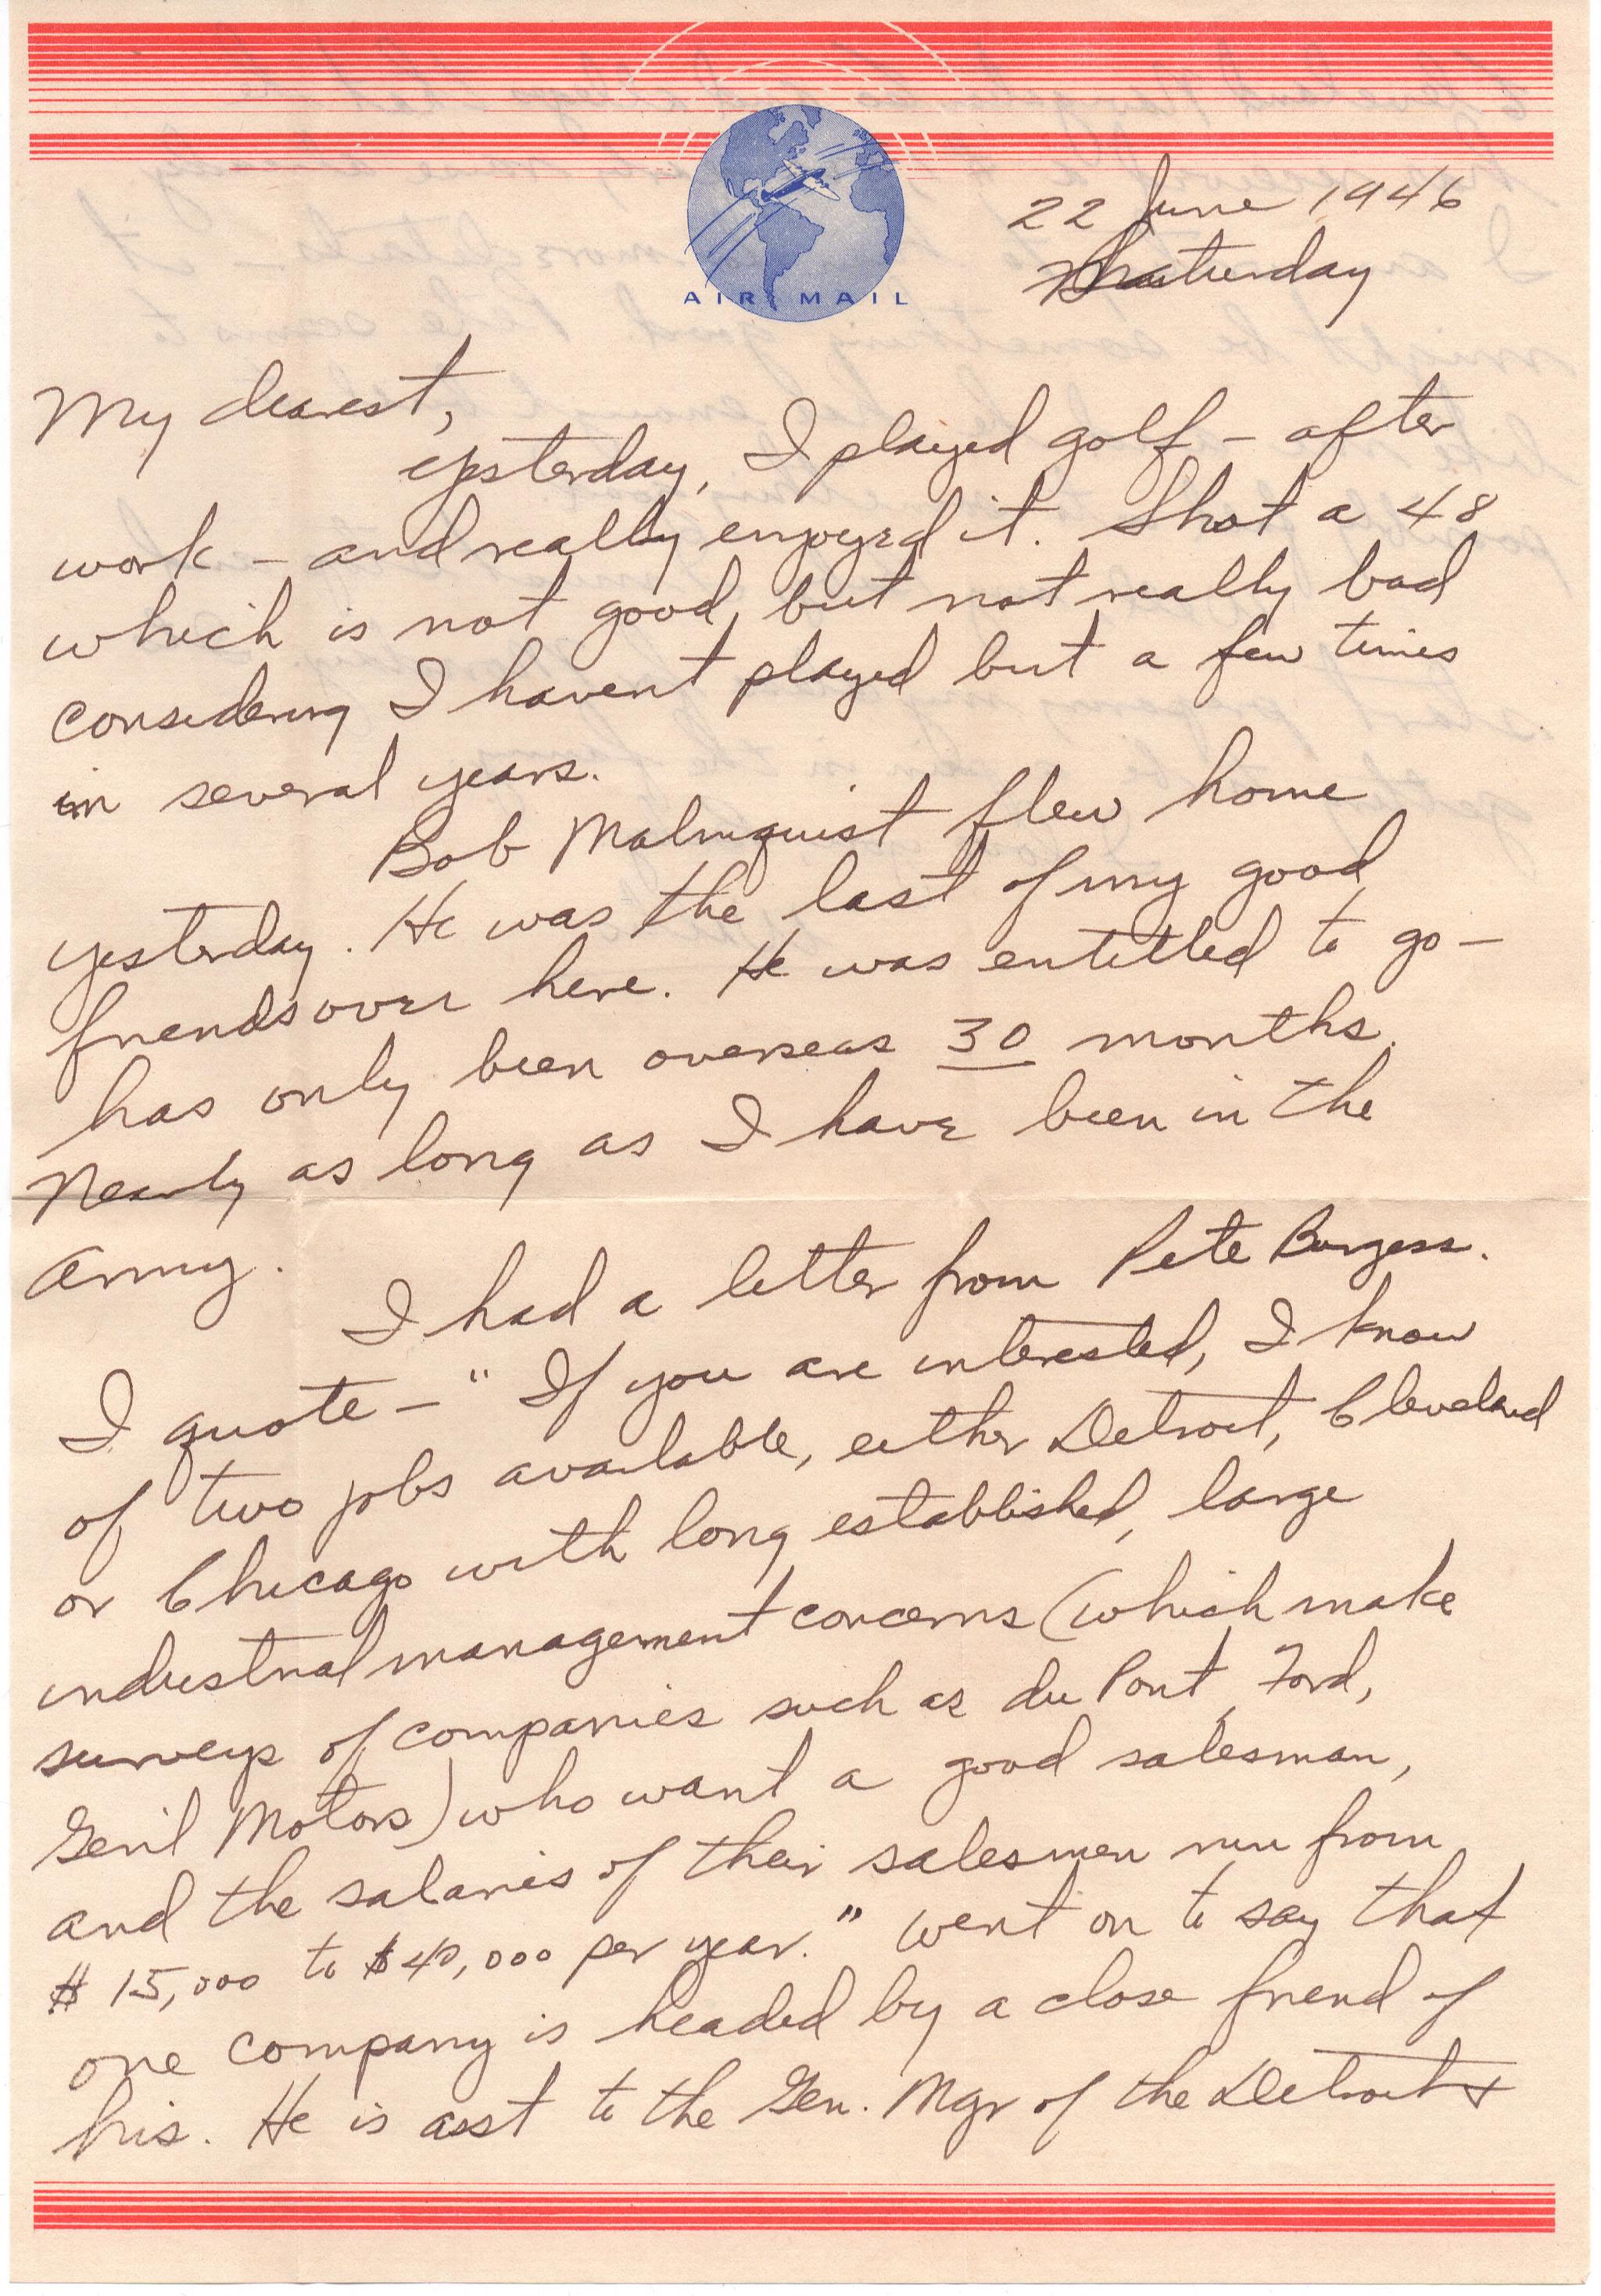 AIR MAIL
22 June 1946
Saturday
My dearest,
yesterday, I played golf – after
work – and really enjoyed it. Shot a 48
which is not good, but not really bad
considering I havent played but a few times
in several years.
Bob Malmquist flew home
yesterday. He was the last of my good
friends over here. He was entitled to go –
has only been overseas 30 months.
Nearly as long as I have been in the
Army.
I had a letter from Pete Burgess.
I quote – "If you are interested, I know
of two jobs available, either Detroit, Cleveland
or Chicago with long established, large
industrial management concerns (which make
surveys of companies such as du Pont, Ford,
Gen'l Motors) who want a good salesman,
and the salaries of their salesmen run from
$15,000 to $40,000 per year." Went on to say that
one company is headed by a close friend of
his. He is asst to the Gen. Mgr of the Detroit &